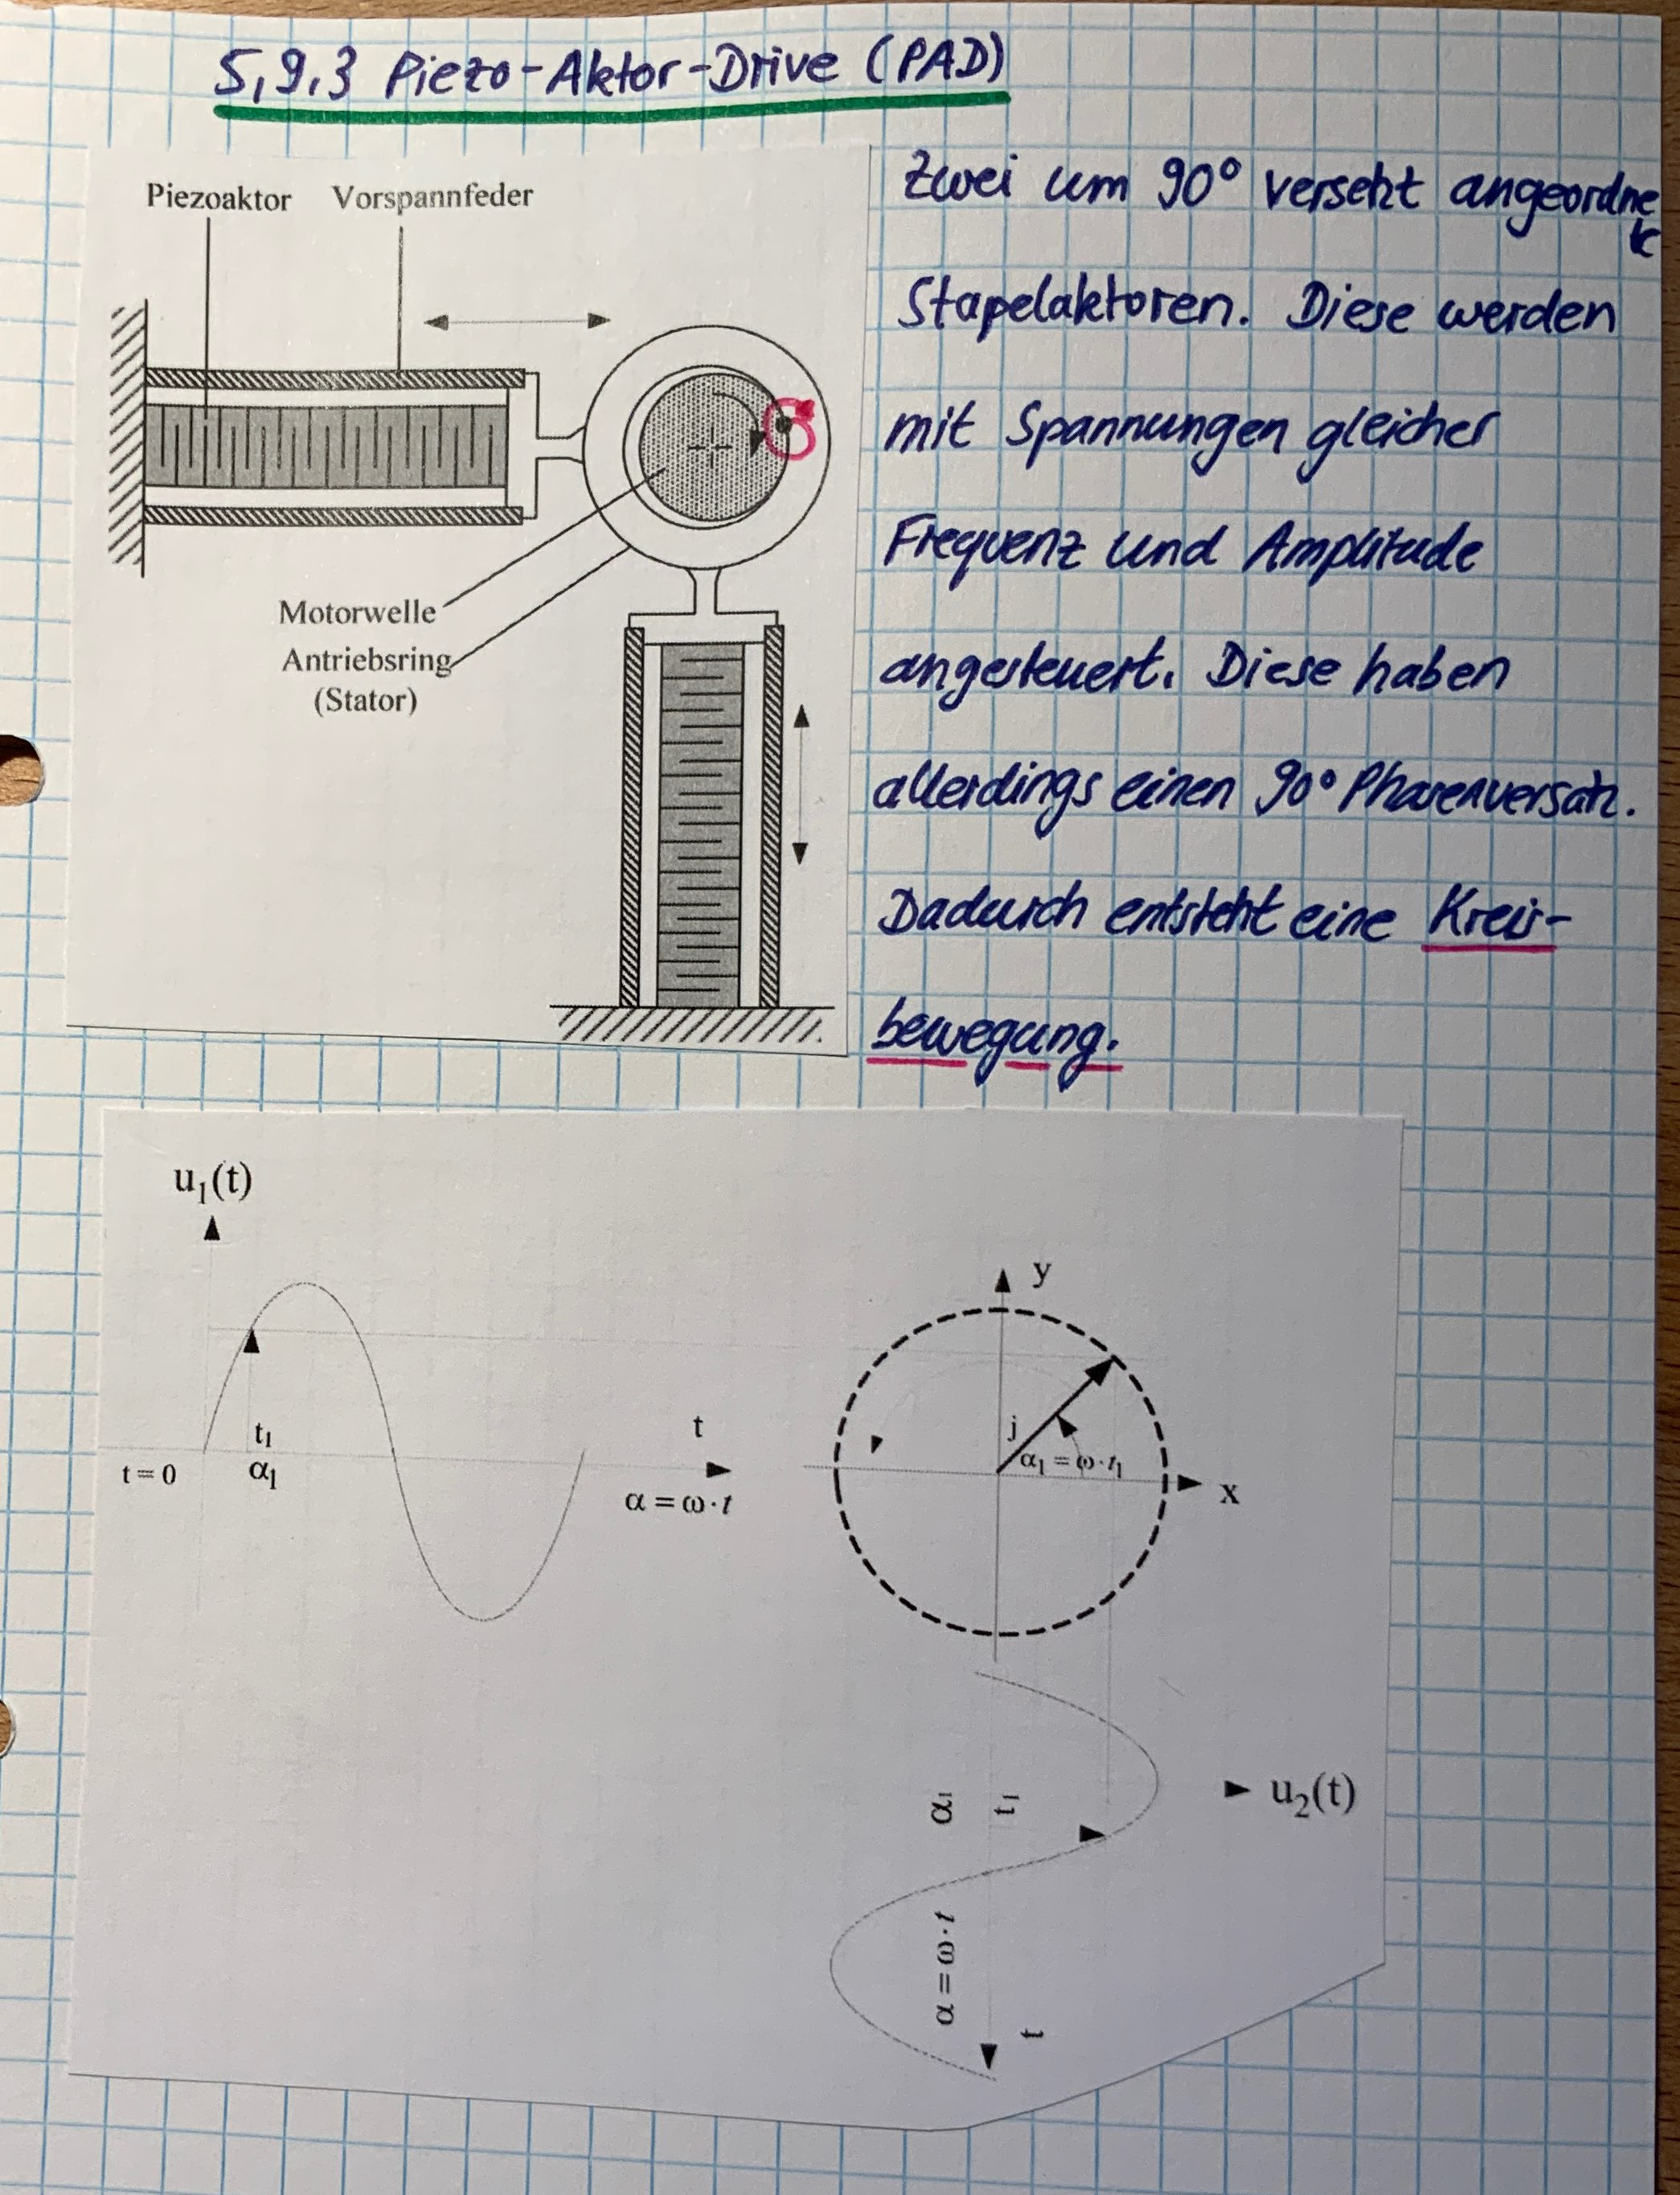 5,9,3 Piezo-Aktor-Drive (PAD)
Piezoaktor Vorspannfeder
Motorwelle
Antriebsring
(Stator)
Zwei um 90° versetzt angeordnete
Stapelaktoren. Diese werden
mit Spannungen gleicher
Frequenz und Amplitude
angesteuert. Diese haben
allerdings einen 90° Phasenversatz.
Dadurch entsteht eine Kreis-
bewegung.
u₁(t)
t₁
α₁
t = 0
t
α = ω · t
y
j
α₁ = ω · t₁
x
α₁
t₁
u₂(t)
α = ω · t
t